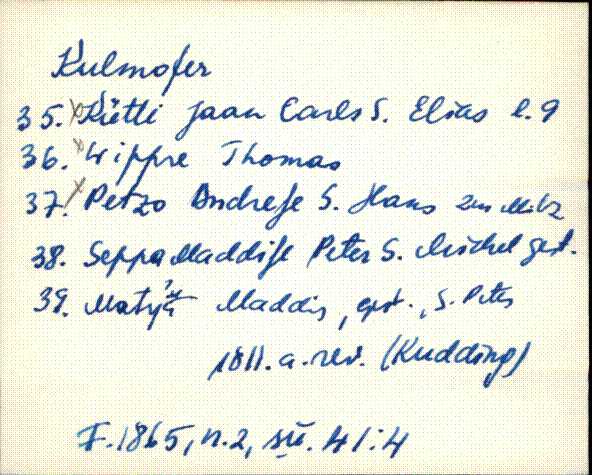 Kulmofer
35. Kütti Jaan Carls S. Elias l. 9
36. Wippre Thomas
37. Petzo Andrese S. Hans zur Miliz
38. Seppa Maddise Peter S. Michel gest.
39. Maddis, gest., S. Peter
1811. a. rev. (Kudding)
F. 1865, n. 2, sü. 41:4